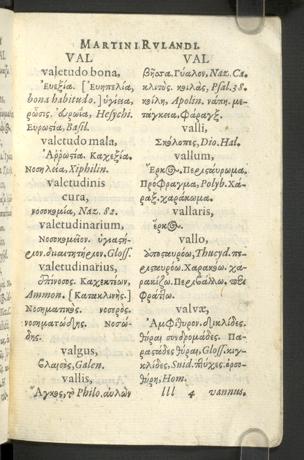 MARTINI RVLANDI.
VAL
valetudo bona,
Εὐεξία. [Εὐηπελία,
bona habitudo.] ὑγίεια,
ρῶσις, ἀρωΐα, Hesychi.
Εὐρωςία, Basil.
valetudo mala,
Ἀῤῥωςία. Καχεξία.
Νοσηλεία, Xiphilin.
valetudinis
cura,
νοσοκομία, Naz. 82.
valetudinarium,
Νοσοκομεῖον. ὑγιαςή-
ριον. διαιτητήριον. Gloss.
valetudinarius,
Ἐπίνοσος. Καχεκτῶν,
Ammon. [Κατακλινής.]
Νοσηματικός. νοσηρός.
νοσηματώδης. Νοσώ-
δης.
valgus,
Βλαισός, Galen.
vallis,
Ἄγκος, τὸ Philo. αὐλὼν
VAL
βῆσσα. Γύαλον, Naz. Ca.
κλιτὺς. κοιλὰς, Psal. 38.
κοίλη, Apolin. νάπη. με-
τάγκεια, Φάραγξ.
valli,
Σκόλοπες, Dio. Hal.
vallum,
Ἕρκος. Περιςαύρωμα.
Πρόφραγμα, Polyb. Χά-
ραξ. χαράκωμα.
vallaris,
ἕρκος.
vallo,
Ὑποςαυρόω, Thucyd. πε-
ριςαυρόω. Χαρακόω. χα-
ρακίζω. Περιβάλλω.
Φράττω.
valvæ,
Ἀμφίθυρον. δικλίδες.
θύραι συνδρομάδες. Πα-
ραςάδες θύραι, Gloss. κιγ-
κλίδες, Suid. πτύχες.
θύρη, Hom.
lll 4 vannus.